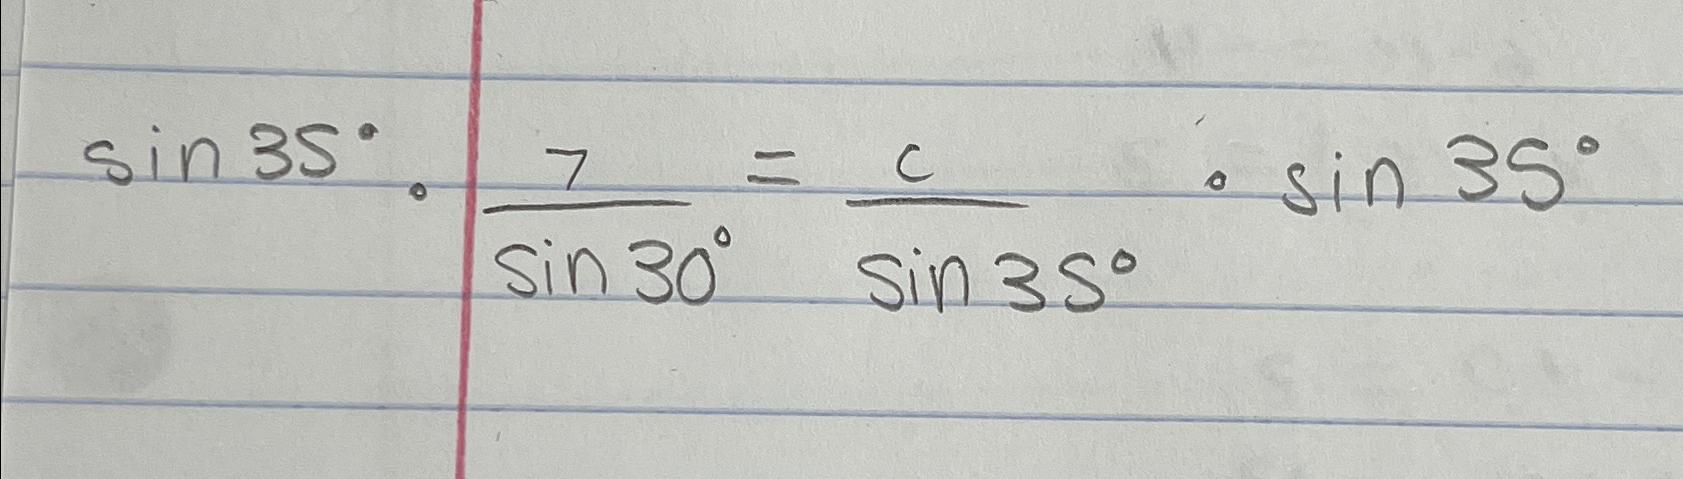 sin 35° · 7/sin 30° = c/sin 35° · sin 35°